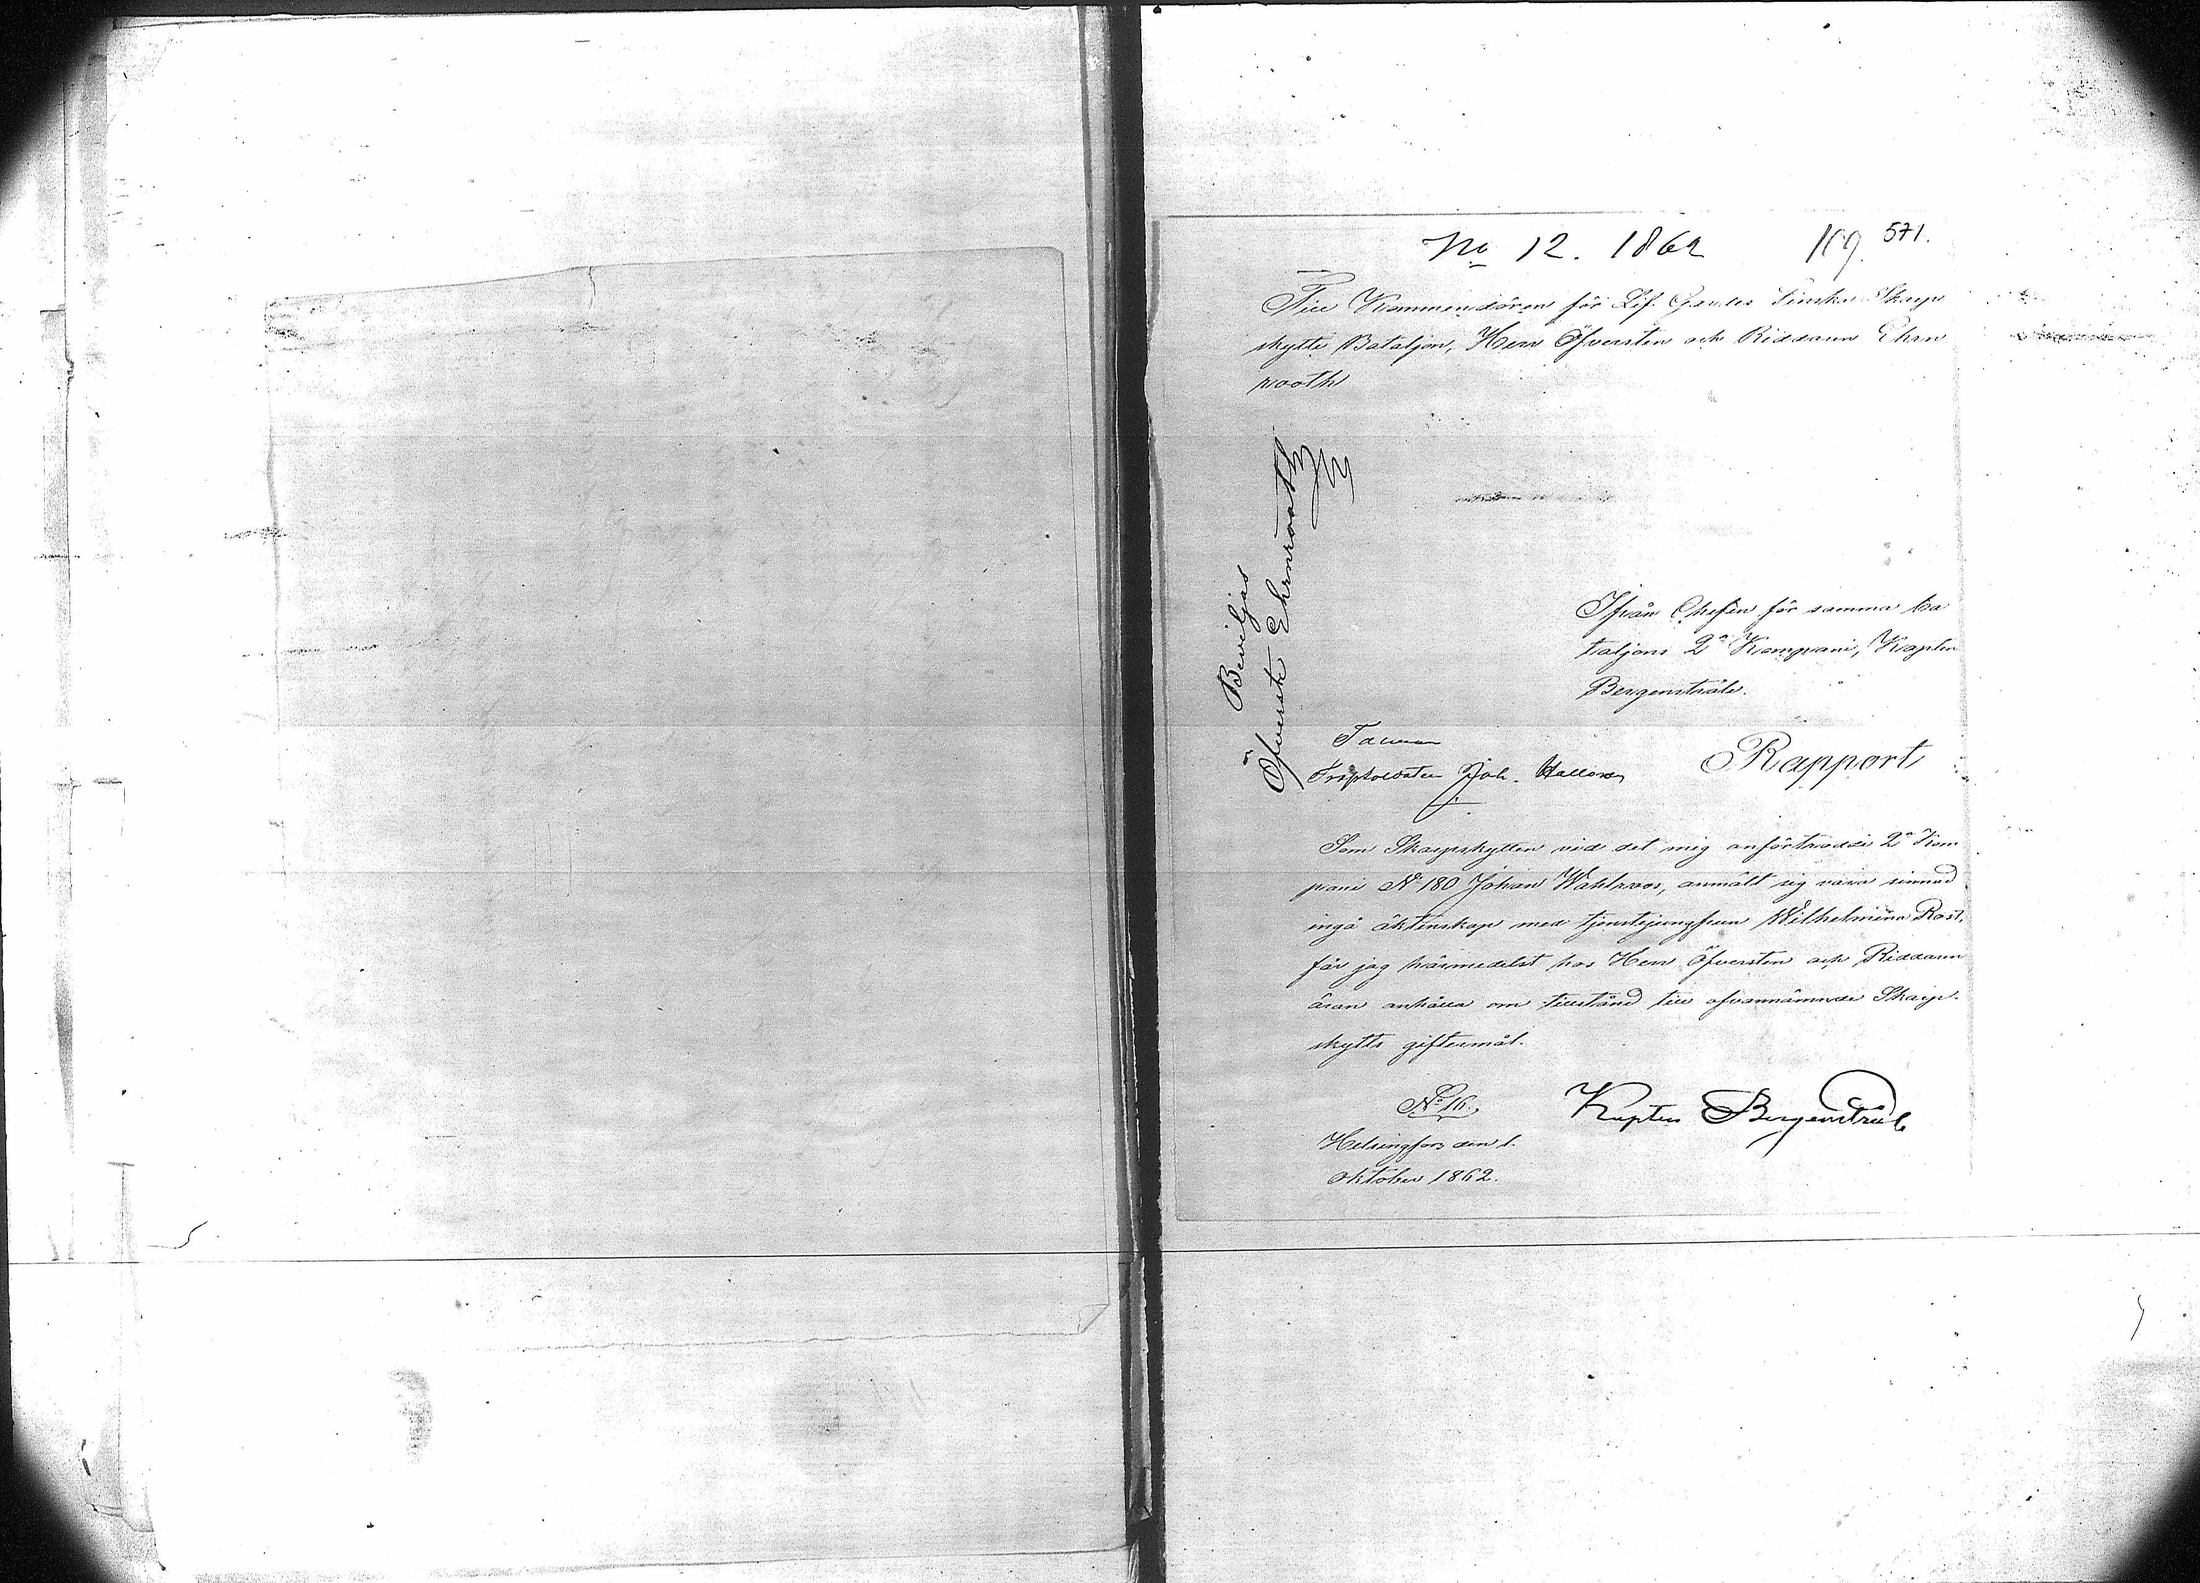 No 12. 1862 109. 571.
Till Kommendören för Lif Gardes Finska Skarp
skytte Bataljon, Herr Öfversten och Riddaren Ehrn
rooth
Beviljas
Öfverste Ehrnrooth
Ifrån Chefen för samma ba
taljons 2a Kompani, Kapten
Bergenstråle.
Joh.
Rapport
Som Skarpskytten vid det mig anförtrodde 2a Kom
pani No 180 Johan Wahlroos, anmält sig vara sinnad
ingå äktenskap med tjenstejungfrun Wilhelmina Rost,
får jag härmedelst hos Herr Öfversten och Riddaren
äran anhålla om tillstånd till ofvannämnde Skarp-
skytts giftermål.
No 16.
Kapten Bergenstråle
Helsingfors den 1.
Oktober 1862.